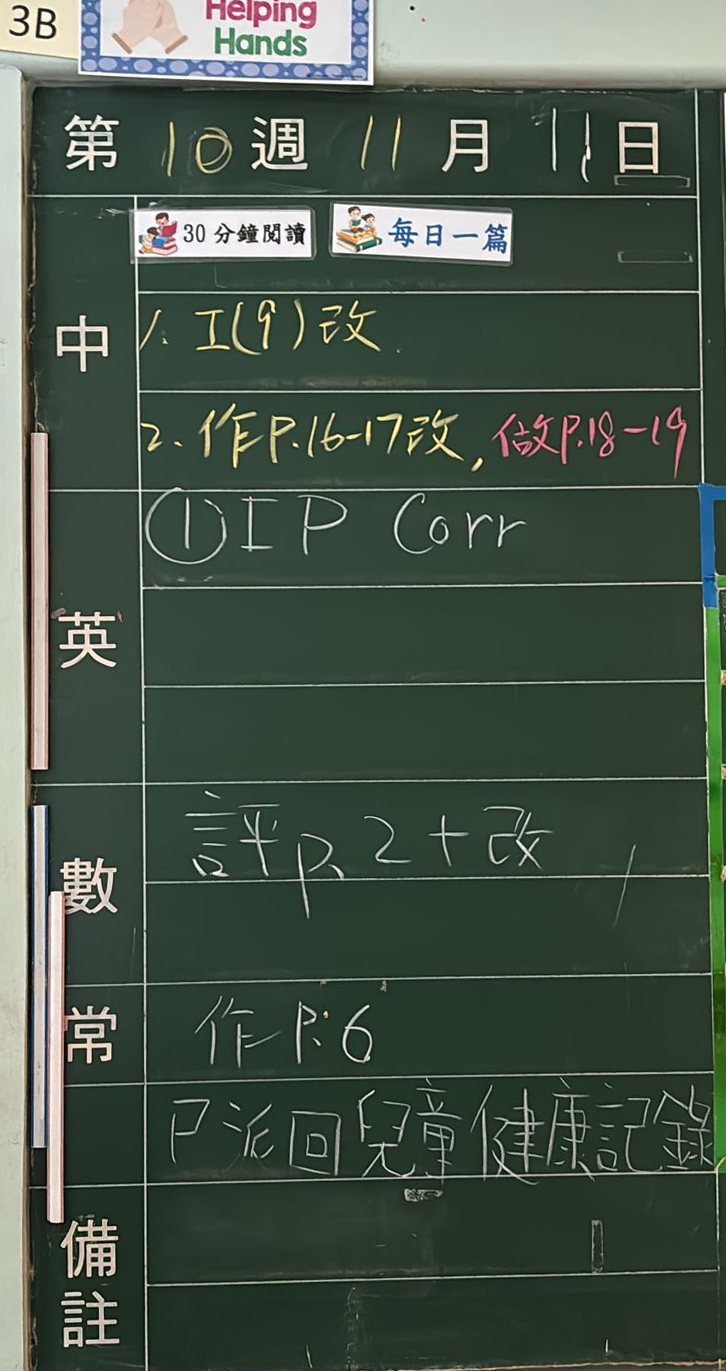 3B
Helping
Hands
第 10 週 11 月 11 日
30分鐘閱讀 每日一篇
中
1. I(9)改
2. 作P.16-17改, 做P.18-19
英
①IP Corr
數
評P.2+改
常
作P.6
已派回兒童健康記錄
備註